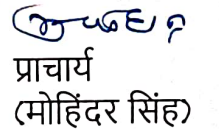 प्राचार्य
(मोहिंदर सिंह)